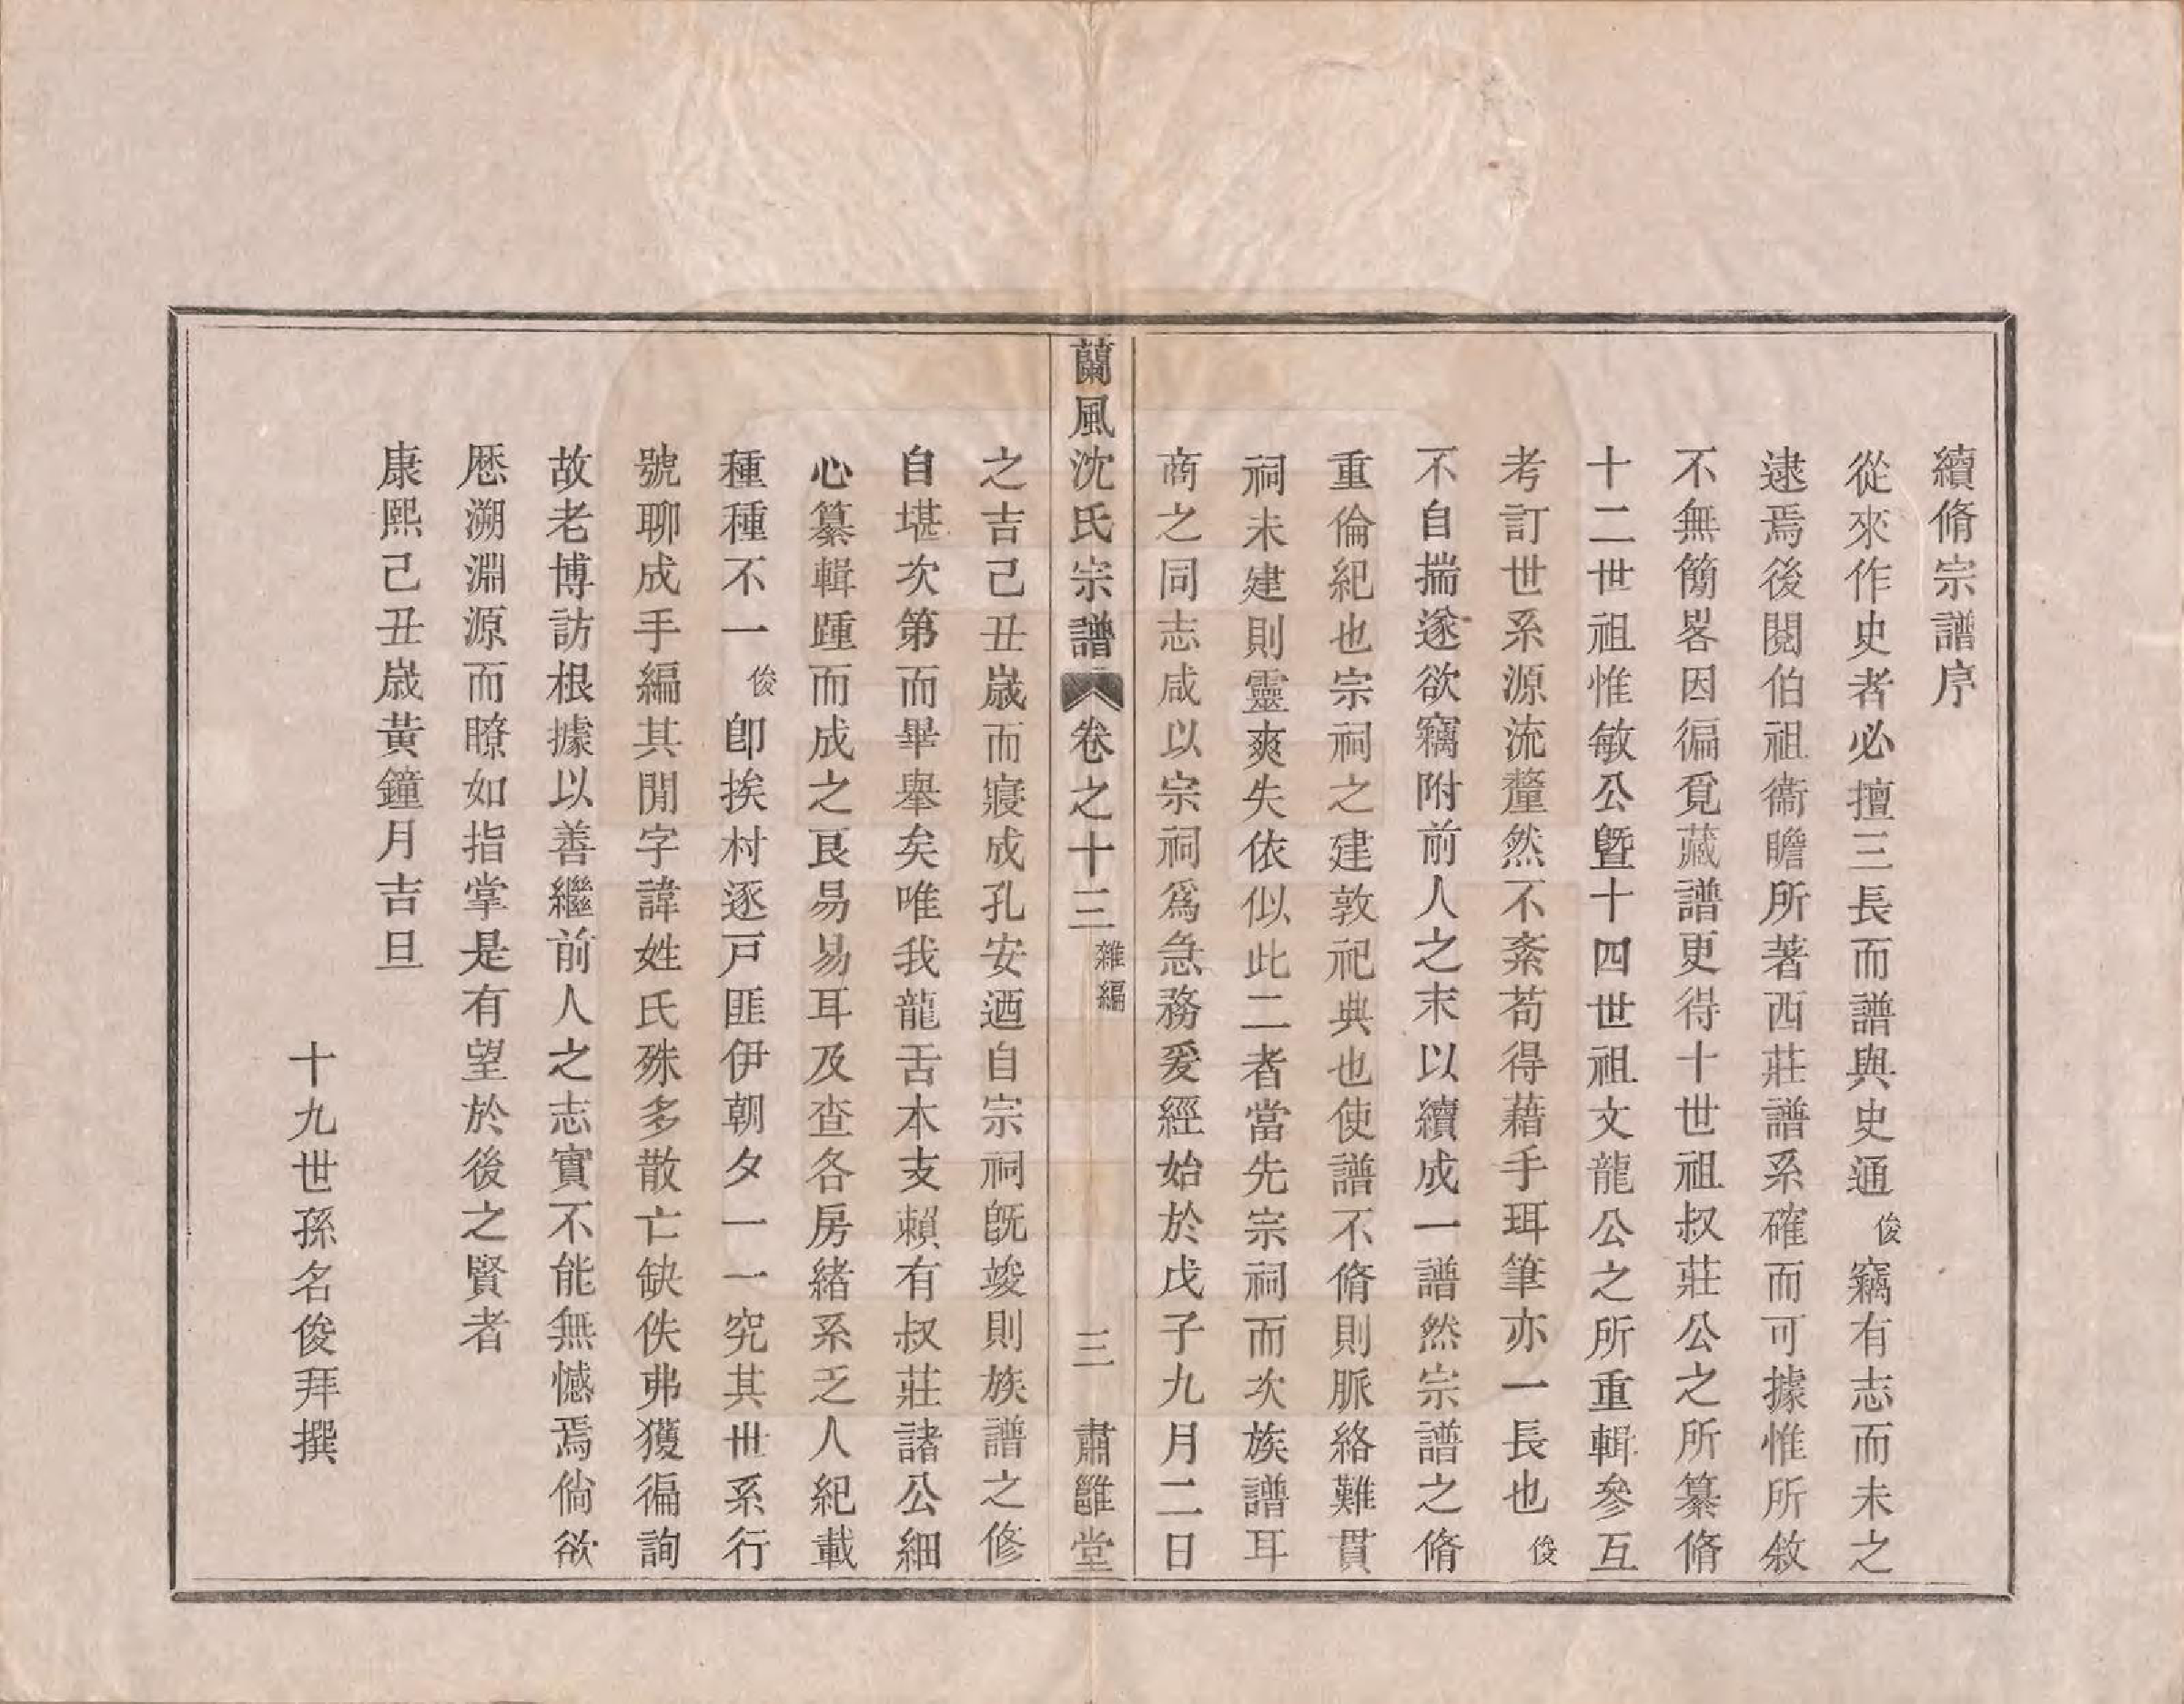 續脩宗譜序
從來作史者必擅三長而譜與史通俊竊有志而未之
逮焉後閱伯祖衞瞻所著西莊譜系確而可據惟所敘
不無簡畧因徧覓藏譜更得十世祖叔莊公之所纂脩
十二世祖惟敏公暨十四世祖文龍公之所重輯參互
考訂世系源流釐然不紊苟得藉手珥筆亦一長也俊
不自揣遂欲竊附前人之末以續成一譜然宗譜之脩
重倫紀也宗祠之建敦祀典也使譜不脩則脈絡難貫
祠未建則靈爽失依似此二者當先宗祠而次族譜耳
商之同志咸以宗祠爲急務爰經始於戊子九月二日
蘭風沈氏宗譜 卷之十三 雜編 三 肅雝堂
之吉己丑歲而寢成孔安迺自宗祠旣竣則族譜之修
自堪次第而畢舉矣唯我龍舌本支賴有叔莊諸公細
心纂輯踵而成之艮易易耳及查各房緒系乏人紀載
種種不一俊卽挨村逐戸匪伊朝夕一一究其卌系行
號聊成手編其閒字諱姓氏殊多散亡缺佚弗獲徧詢
故老博訪根據以善繼前人之志實不能無憾焉倘欲
厯溯淵源而瞭如指掌是有望於後之賢者
康熙己丑歲黃鐘月吉旦
十九世孫名俊拜撰